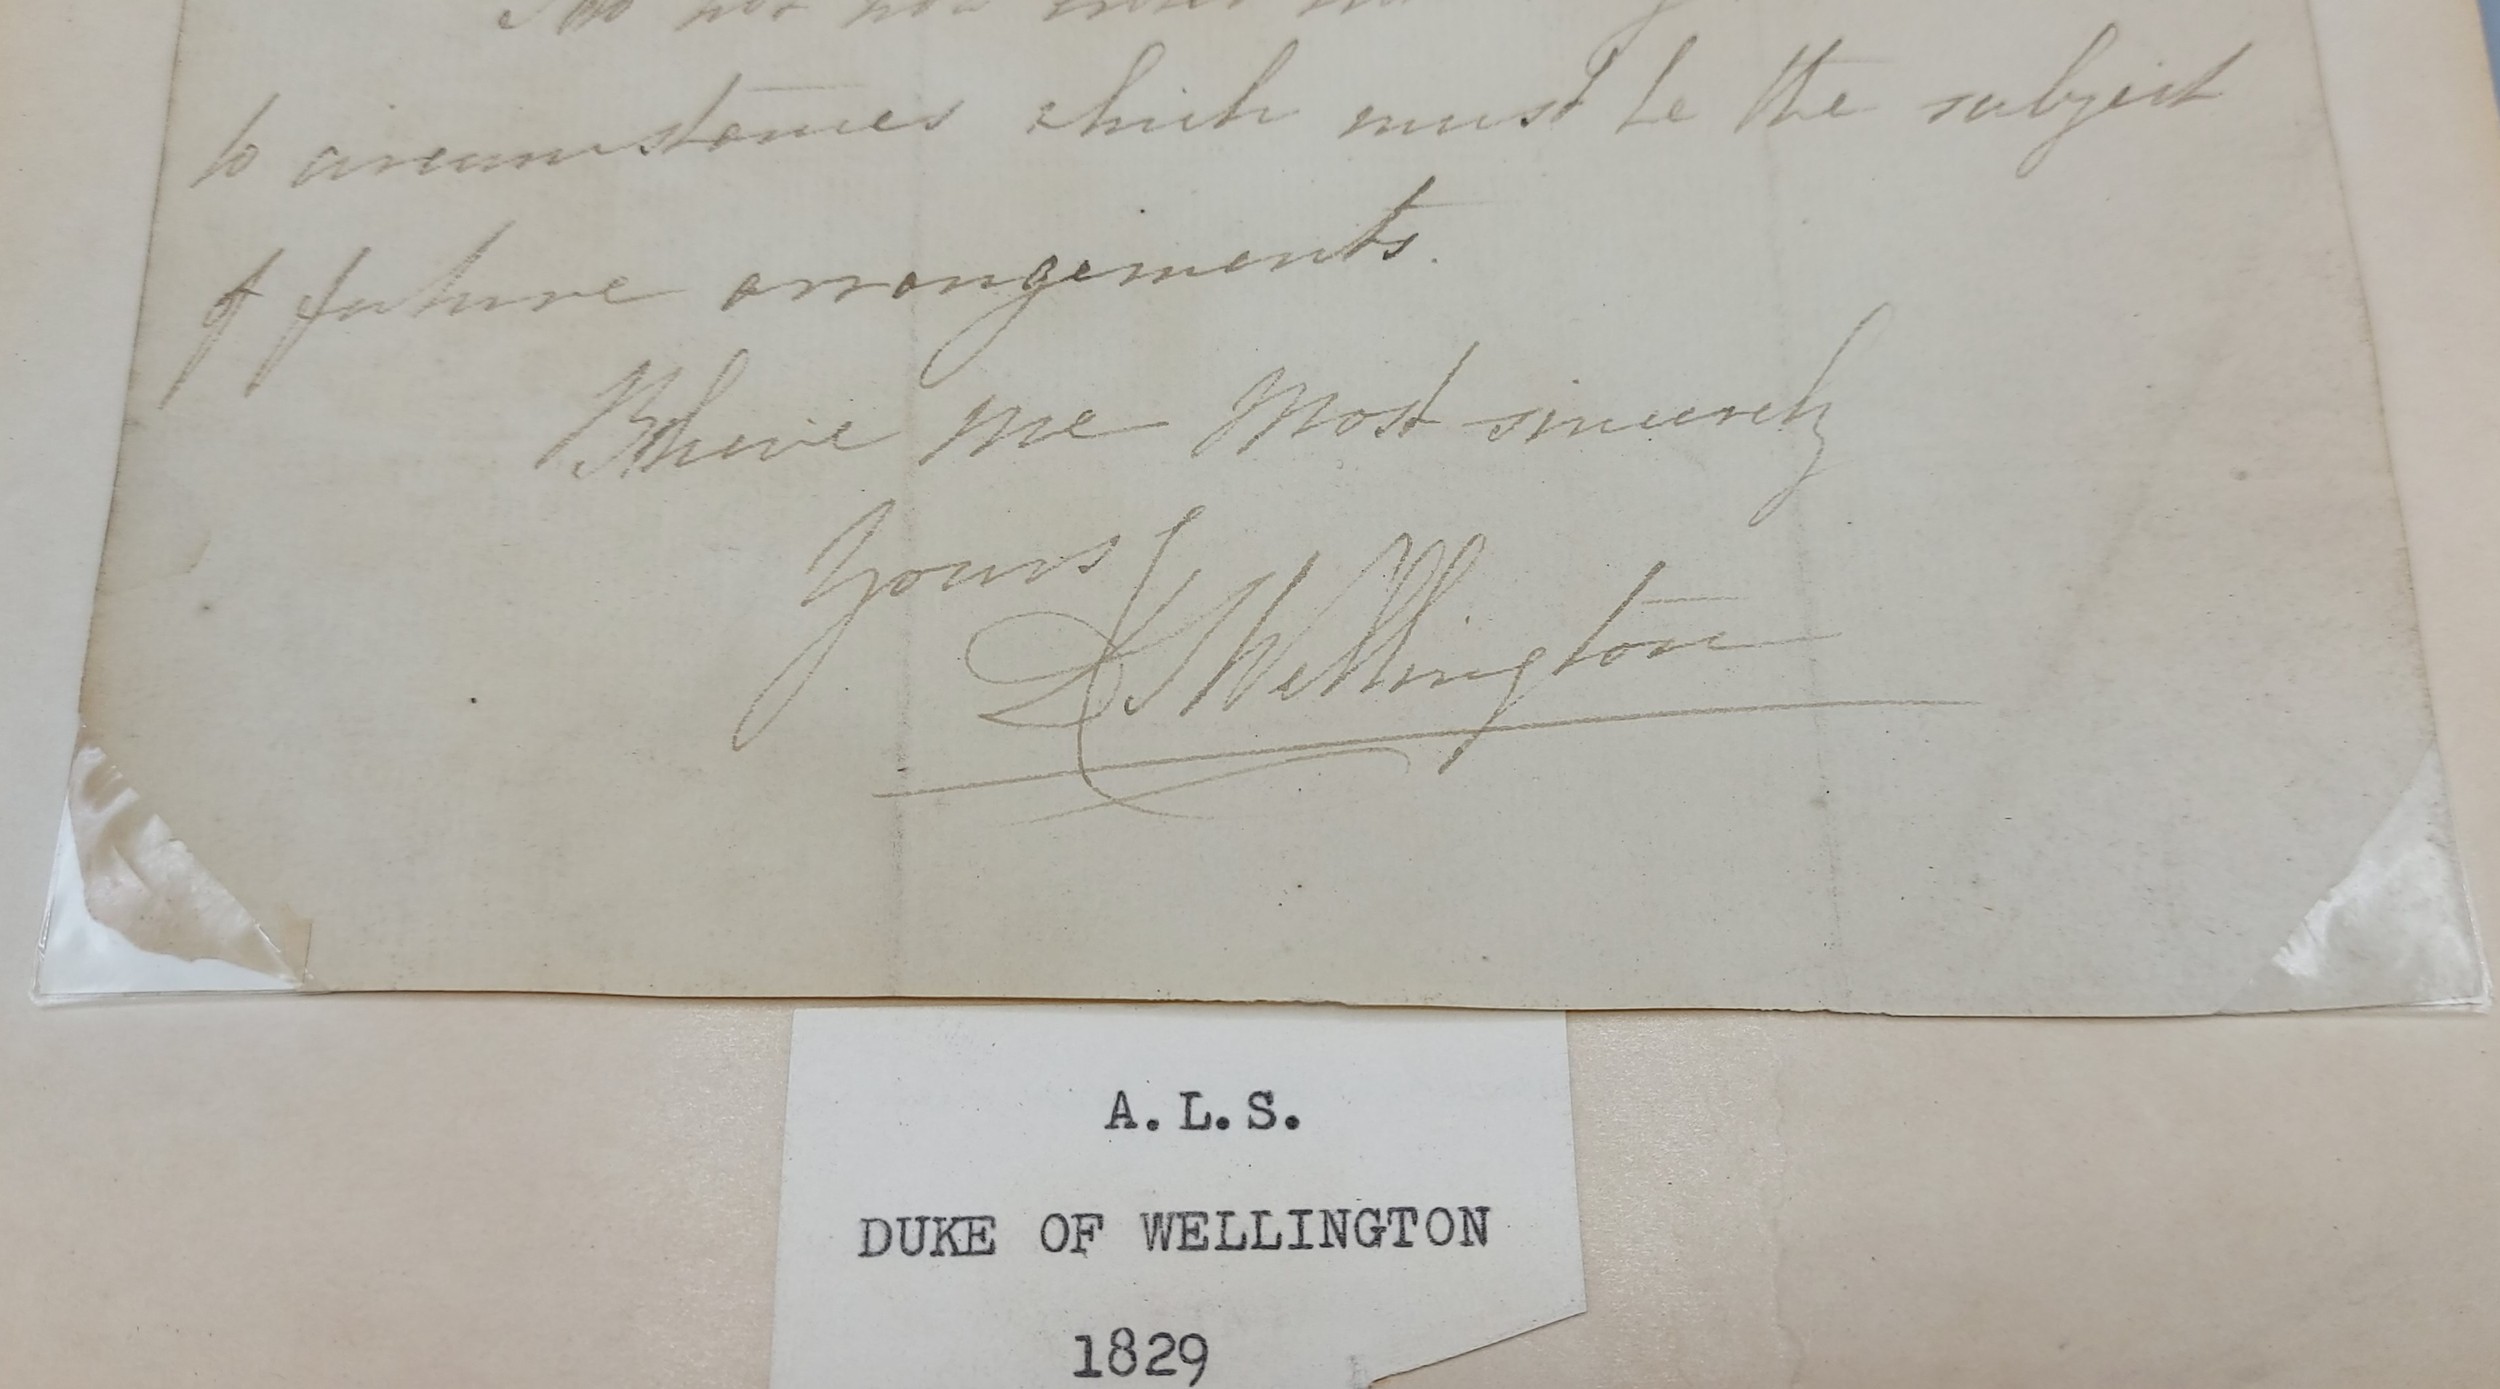 I do not now enter
to circumstances which must be the subject
of future arrangements.
Believe me Most sincerely
Yours
Wellington
A.L.S.
DUKE OF WELLINGTON
1829